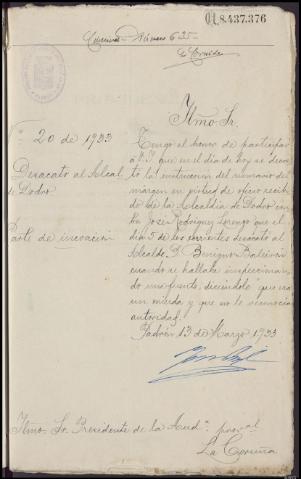 01.8.437.376
Criminal - Número 625
La Coruña
Iltmo. Sr.
nº 20 de 1933
Desacato al Alcal
de Dodro
Parte de incoación
Tengo el honor de participar
á V.I. que en el día de hoy se decre
tó la instrucción del sumario del
margen en virtud de oficio recibi
do de la Alcaldía de Dodro con
tra José Rodríguez Lorenzo que el
día 5 de los corrientes desacató al
Alcalde D. Benigno Baleirón
cuando se hallaba inspeccionan
do una fuente, diciéndole "que era
un mierda y que no le reconocía
autoridad.
Padrón, 13 de Marzo 1933
Iltmo. Sr. Presidente de la Audª. provᵃˡ
La Coruña